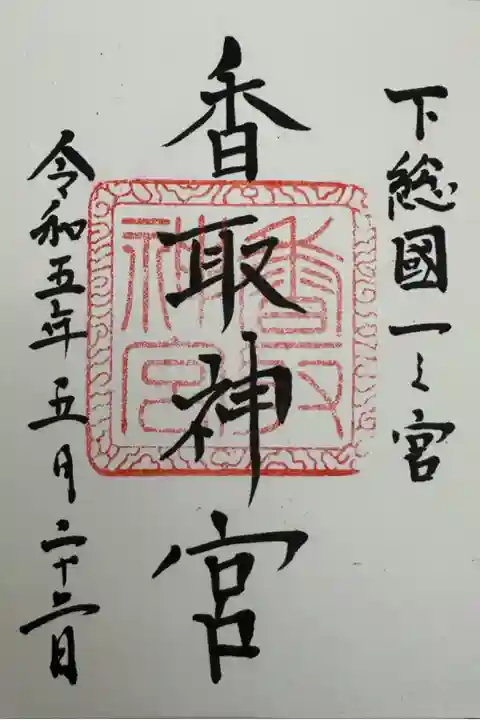 下総國一之宮
香取神宮
香取
神宮
令和五年五月二十三日